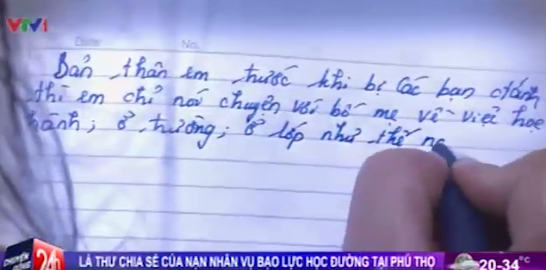 VTV1
Date No.
Bản thân em trước khi bị các bạn đánh
thì em chỉ nói chuyện với bố mẹ về việc học
hành; ở trường; ở lớp như thế n
CHUYỂN ĐỘNG 24h
LÁ THƯ CHIA SẺ CỦA NẠN NHÂN VỤ BẠO LỰC HỌC ĐƯỜNG TẠI PHÚ THỌ
20-34°C